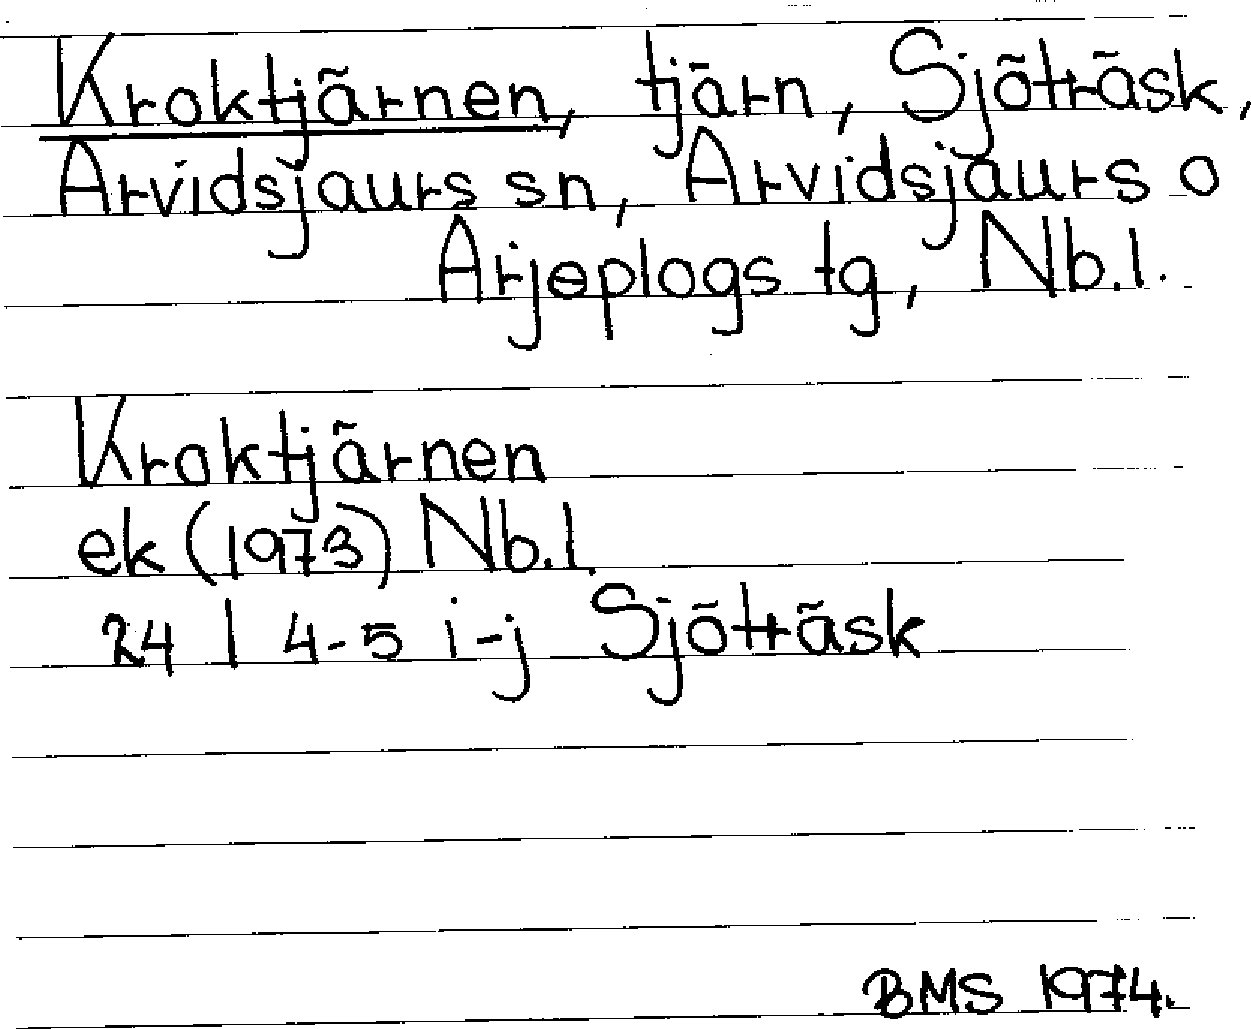 Kroktjärnen, tjärn, Sjöträsk,
Arvidsjaurs sn, Arvidsjaurs o
Arjeplogs tg, Nb.l.
Kroktjärnen
ek (1973) Nb.l.
24 I 4-5 i-j Sjöträsk
BMS 1974.